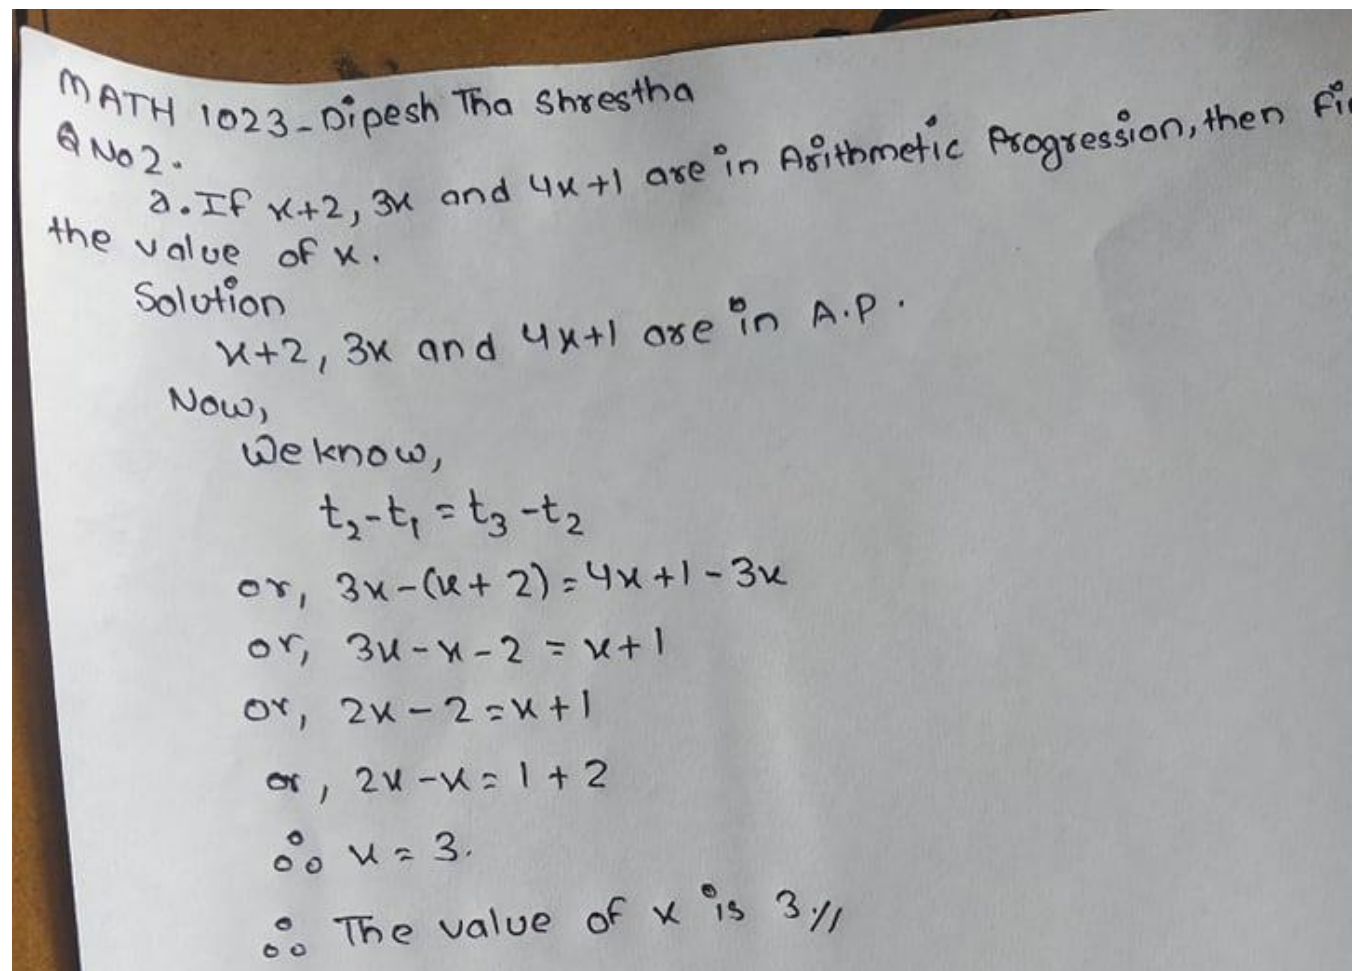 MATH 1023-Dipesh Tha Shrestha
Q No 2.
a. If x+2, 3x and 4x+1 are in Arithmetic Progression, then
the value of x.
Solution
x+2, 3x and 4x+1 are in A.P.
Now,
We know,
t₂-t₁ = t₃-t₂
or, 3x-(x+2)=4x+1-3x
or, 3x-x-2 = x+1
or, 2x-2=x+1
or, 2x-x=1+2
∴ x=3.
∴ The value of x is 3.//